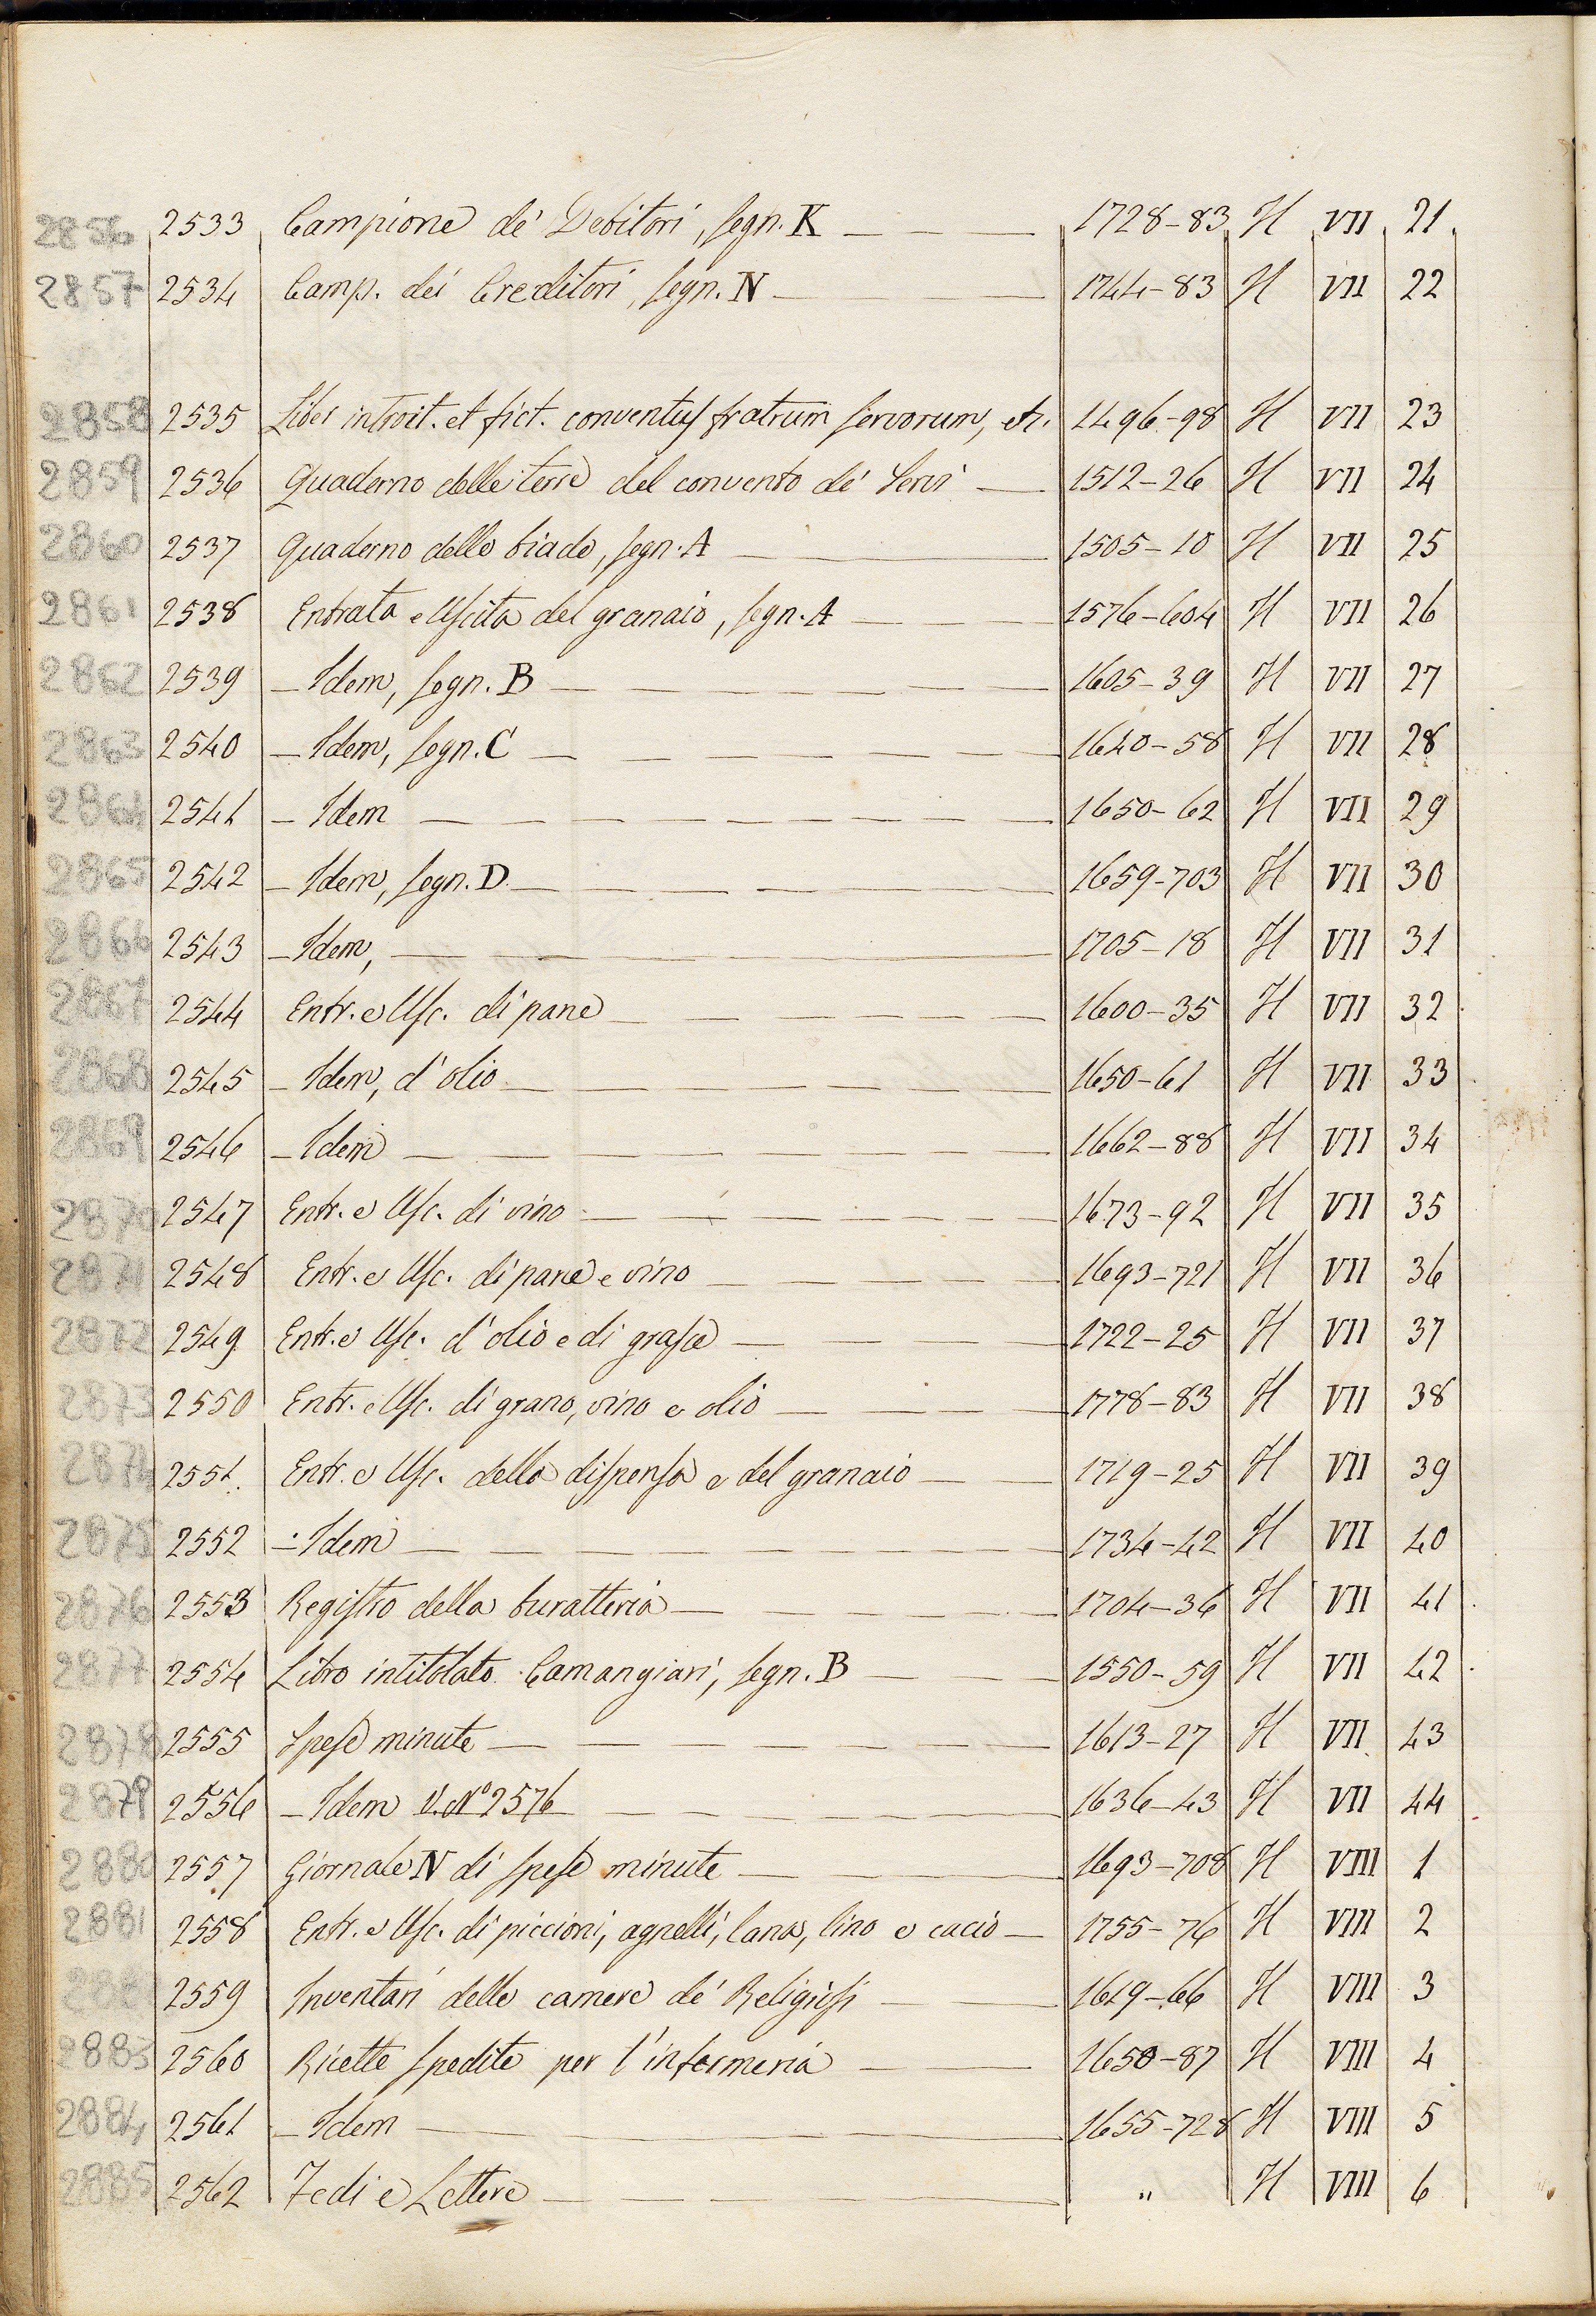 2856 2533 Campione de' Debitori, segn. K 1728-83 H VII 21
2857 2534 Camp. dei Creditori, segn. N 1744-83 H VII 22
2858 2535 Liber introit. et fict. conventus fratrum servorum, etc. 1496-98 H VII 23
2859 2536 Quaderno delle terre del convento de' Servi 1512-26 H VII 24
2860 2537 Quaderno delle biade, segn. A 1505-10 H VII 25
2861 2538 Entrata e Uscita del granaio, segn. A 1576-604 H VII 26
2862 2539 - Idem, segn. B 1605-39 H VII 27
2863 2540 - Idem, segn. C 1640-58 H VII 28
2864 2541 - Idem 1650-62 H VII 29
2865 2542 - Idem, segn. D. 1659-703 H VII 30
2866 2543 - Idem, 1705-18 H VII 31
2867 2544 Entr. e Usc. di pane 1600-35 H VII 32
2868 2545 - Idem, d'olio 1650-61 H VII 33
2869 2546 - Idem 1662-88 H VII 34
2870 2547 Entr. e Usc. di vino 1673-92 H VII 35
2871 2548 Entr. e Usc. di pane e vino 1693-721 H VII 36
2872 2549 Entr. e Usc. d'olio e di grasce 1722-25 H VII 37
2873 2550 Entr. e Usc. di grano, vino e olio 1778-83 H VII 38
2874 2551. Entr. e Usc. della dispensa e del granaio 1719-25 H VII 39
2875 2552 - Idem 1734-42 H VII 40
2876 2553 Registro della buratteria 1704-36 H VII 41
2877 2554 Libro intitolato Camangiari, segn. B 1550-59 H VII 42
2878 2555 Spese minute 1613-27 H VII 43
2879 2556 - Idem V. No 2576 1636-43 H VII 44
2880 2557 Giornale N di spese minute 1693-708 H VIII 1
2881 2558 Entr. e Usc. di piccioni, agnelli, lana, lino e cacio 1755-76 H VIII 2
2882 2559 Inventari delle camere de' Religiosi 1619-66 H VIII 3
2883 2560 Ricette spedite per l'infermeria 1650-87 H VIII 4
2884 2561 - Idem 1655-728 H VIII 5
2885 2562 Fedi e Lettere " H VIII 6